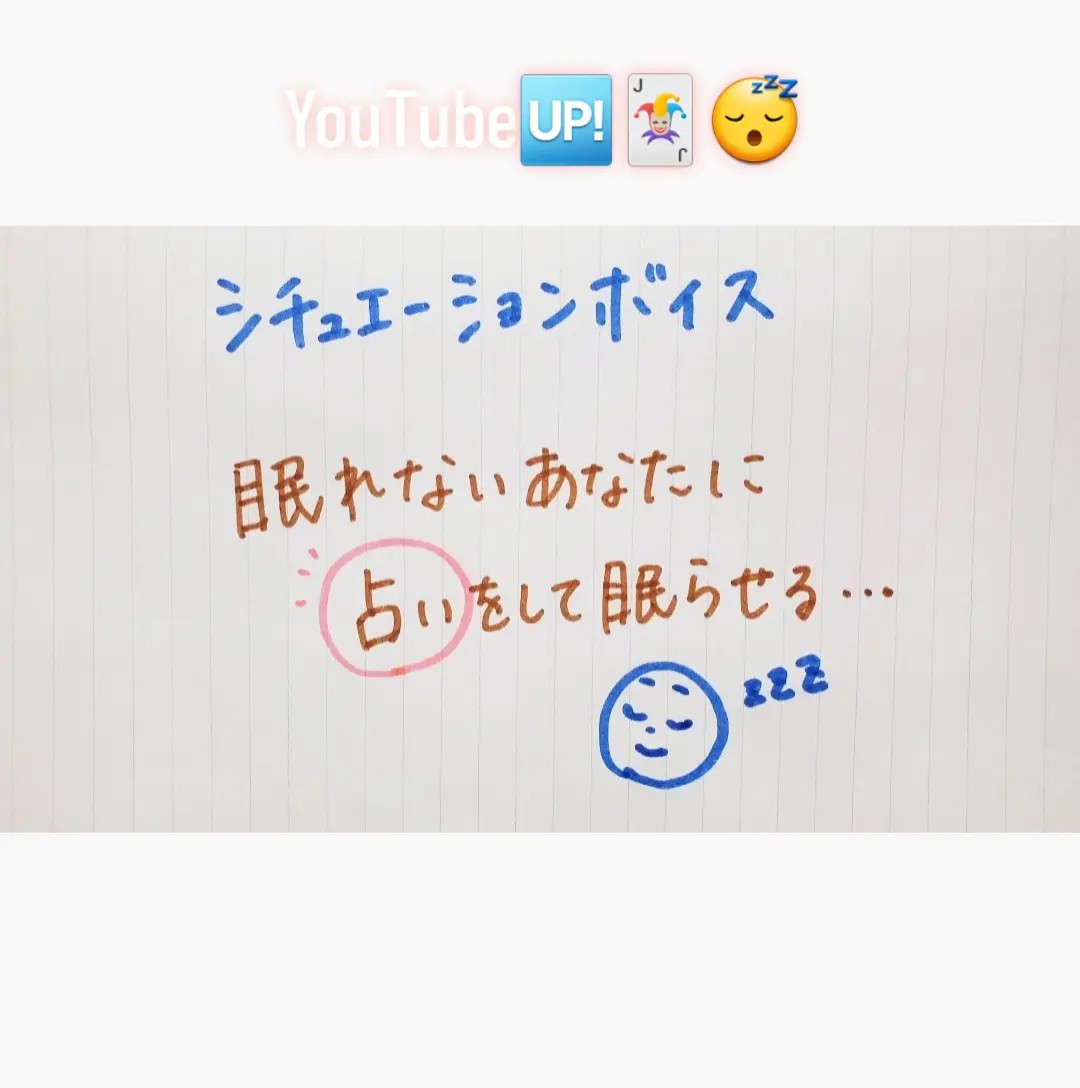 YouTube🆙🃏😴
シチュエーションボイス
眠れないあなたに
占いをして眠らせる…
zzz